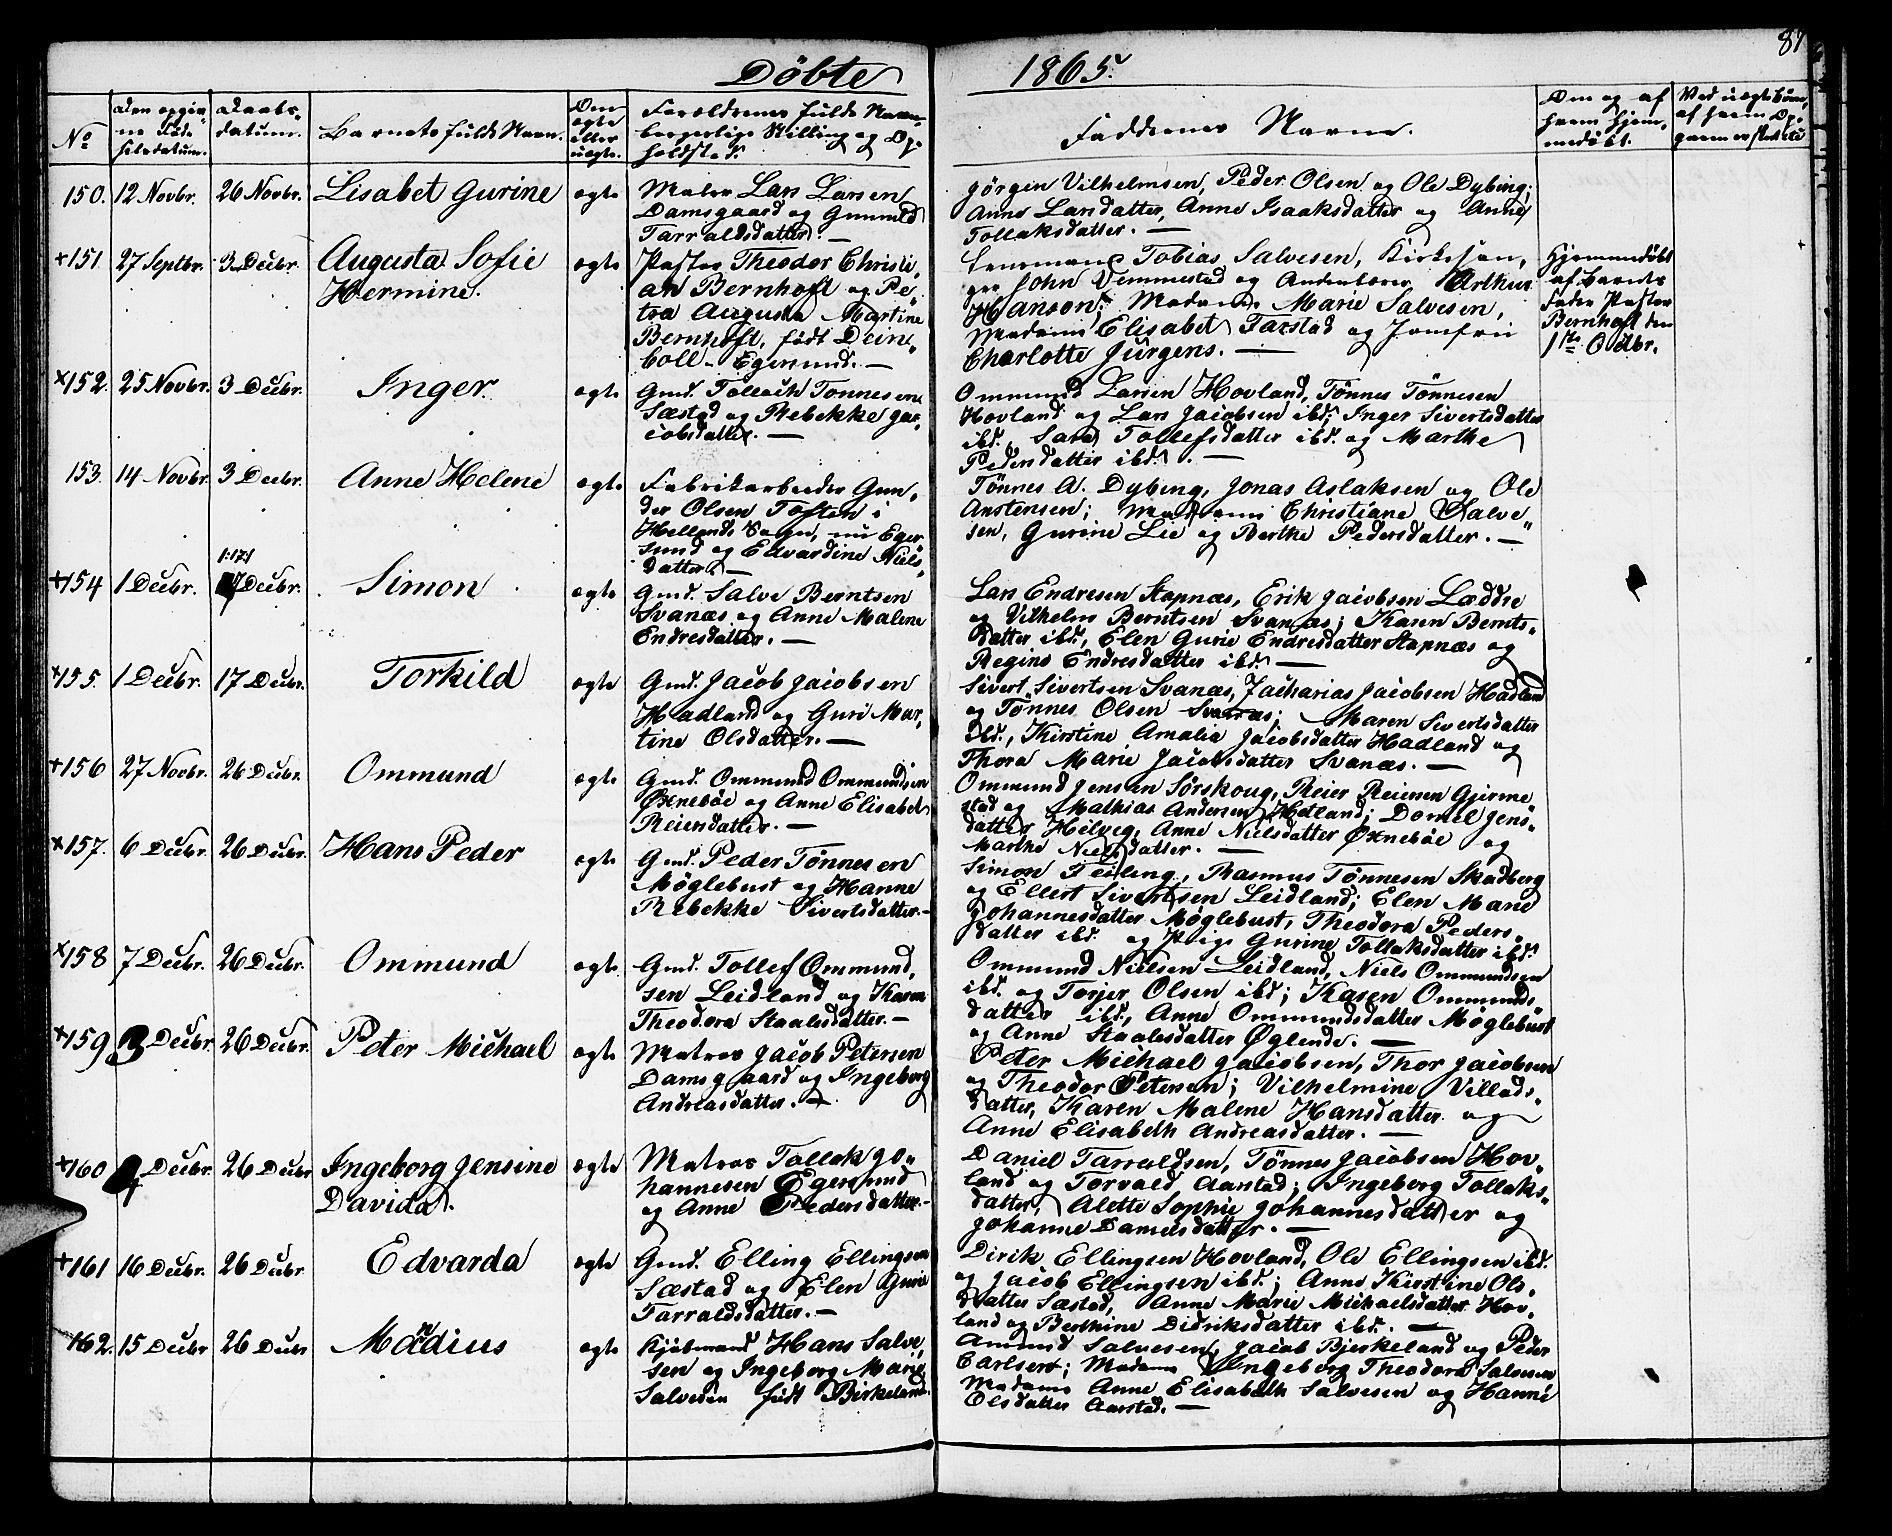 87
Döbte 1865.
No
Den opgivne Födselsdatum.
Daabsdatum.
Barnets fulde Navn.
Om ægte eller uægte.
Forældrenes fulde Navn borgerlige Stilling og Opholdsted.
Faddernes Navne.
Om og af hvem hjemmedöbt.
150. 12 Novbr. 26 Novbr. Lisabet Gurine ægte
Matros Lars Larsen
Damsgaard og Gunnild
Tarraldsdatter. —
Jörgen Vilhelmsen, Peder Olsen og Ole Dybing;
Anne Larsdatter, Anne Isaaksdatter og Anne
Tollaksdatter. —
+151 27 Septbr. 3 Decbr. Augusta Sofie
Hermine. ægte
Pastor Theodor Christi,
an Bernhoft og Pe,
tra Augusta Martine
Bernhoft, född Dein,
boll. Egersund. —
Lensmand Tobias Salvesen, Kirkesan,
ger John Vemmestad og Andenlærer Arthur
Hanson; Madame Marie Salvesen,
Madame Elisabet Tarstad og Jomfru
Charlotte Jürgens. —
Hjemmedöbt
af Barnets
Fader Pastor
Bernhoft den
1ste Octbr.
+152. 25 Novbr. 3 Decbr. Inger ægte
Gmd. Tollach Tönnesen
Sæstad og Rebekke Ja,
cobsdatter. —
Ommund Larsen Hovland, Tönnes Tönnesen
Hovland og Lars Jacobsen ibd; Inger Sivertsdatter
ibd., Sara Tollefsdatter ibd. og Marthe
Pedersdatter ibd. —
153. 14 Novbr. 3 Decbr. Anne Helene ægte
Fabrikarbeider Gun,
der Olsen Toften i
Hellands Sogn, nu Eger
sund og Edvardine Niels
datter. —
Tönnes A. Dybing, Jonas Aslaksen og Ole
Anstensen; Madame Christiane Salve,
sen, Gurine Lie og Berthe Pedersdatter. —
+154 1 Decbr. 17 Decbr. Simon ægte
Gmd. Salve Berntsen
Svanæs og Anne Malene
Endresdatter. —
Lars Endresen Stapnæs, Erik Jacobsen Læddre
og Vilhelm Berntsen Svanæs; Karen Bernts,
datter ibd., Elen Gurie Endresdatter Stapnæs og
Regine Endresdatter ibd. —
+155. 1 Decbr. 17 Decbr. Torkild ægte
Gmd. Jacob Jacobsen
Hadland og Guri Mar,
tine Olsdatter. —
Sivert Sivertsen Svanæs, Zacharias Jacobsen Hadland
og Tönnes Olsen Svanæs; Maren Sivertsdatter
ibd., Kirstine Amalia Jacobsdatter Hadland og
Thora Marie Jacobsdatter Svanæs. —
+156 27 Novbr. 26 Decbr. Ommund ægte
Gmd. Ommund Ommundsen
Øxneböe og Anne Elisabet
Reiersdatter. —
Ommund Jensen Sörskoug, Reier Reiersen Gjerme,
stad og Mathias Andersen Hetland; Dorthel Jens,
datter Helveg, Anne Nielsdatter Øxneböe og
Marthe Nielsdatter. —
+157. 6 Decbr. 26 Decbr. Hans Peder ægte
Gmd. Peder Tönnesen
Möglebust og Hanne
Rebekke Sivertsdatter. —
Simon Feiling, Rasmus Tönnesen Skadberg
og Ellert Sivertsen Leidland; Elen Marie
Johannesdatter Möglebust, Theodora Peders,
datter ibd. og Pige Gurine Tollaksdatter ibd.
+158 7 Decbr. 26 Decbr. Ommund ægte
Gmd. Tollef Ommund,
sen Leidland og Karen
Theodora Staalesdatter. —
Ommund Nielsen Leidland, Niels Ommundsen
ibd. og Torjer Olsen ibd; Karen Ommunds,
datter ibd, Anne Ommundsdatter Möglebust
og Anne Staalesdatter Øglende. —
+159 3 Decbr. 26 Decbr. Peter Michael ægte
Matros Jacob Petersen
Damsgaard og Ingeborg
Andreasdatter. —
Peter Michael Jacobsen, Thor Jacobsen
og Theodor Petersen; Vilhelmine Villads,
datter, Karen Malene Hansdatter og
Anne Elisabeth Andreasdatter. —
+160 4 Decbr. 26 Decbr Ingeborg Jensine
Davida. ægte
Matros Tollak Jo,
hannesen Egersund
og Anne Pedersdatter. —
Daniel Tarraldsen, Tönnes Jacobsen Hov,
land og Torvald Aarstad; Ingeborg Tollaks,
datter, Alette Sophie Johannesdatter og
Johanne Danielsdatter. —
+161 16 Decbr. 26 Decbr. Edvarda ægte
Gmd. Elling Ellingsen
Sæstad og Elen Gurie
Tarraldsdatter. —
Dirik Ellingsen Hovland, Ole Ellingsen ibd.
og Jacob Ellingsen ibd.; Anne Kirstine Ols,
datter Sæstad, Anne Marie Michaelsdatter Hov,
land og Berthine Didriksdatter ibd. —
162. 15 Decbr 26 Decbr Mandius ægte
Kjöbmand Hans Salve,
sen og Ingeborg Marie
Salvesen född Birkeland.
Amund Salvesen, Jacob Bjerkeland og Peder
Carlsen; Madame Ingeborg Theodora Salvesen
Madame Anne Elisabeth Salvesen og Hanne
Olsdatter Aarstad. —